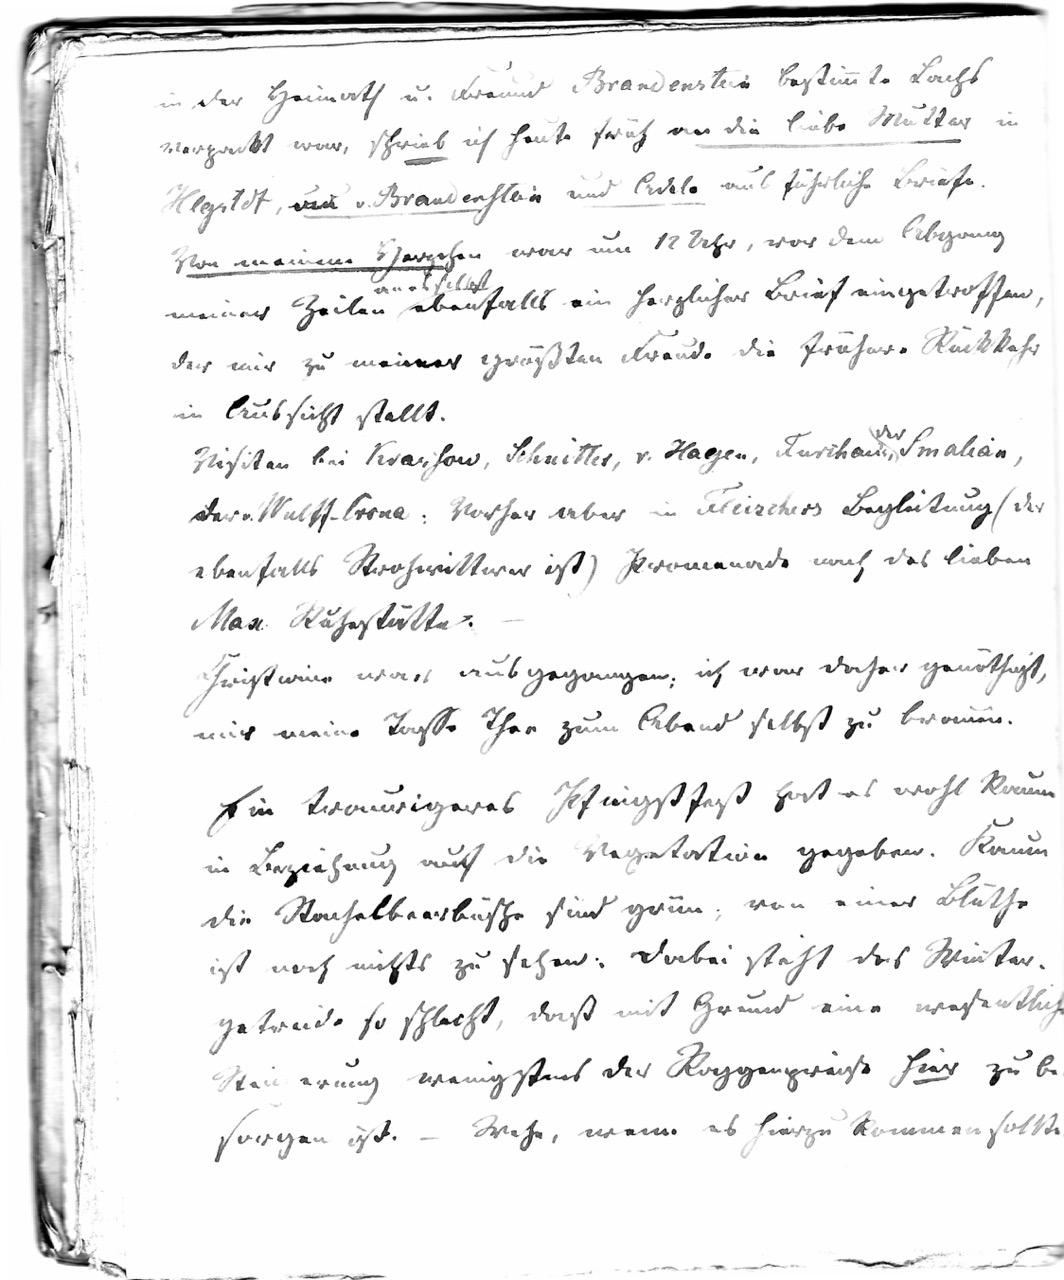 in der Heimath u. Freund Brandenstein bestimmte Lachs
verpackt war, schrieb ich heute früh an die liebe Mutter in
Hlgstdt, an v. Brandenstein und Adele ausführliche Briefe.
Von meinem Herzchen war um 12 Uhr, vor dem Abgang
meiner Zeilen ebenfalls ein herzlicher Brief eingetroffen,
der mir zu meiner größten Freude die frühere Rückkehr
in Aussicht stellt.
Visiten bei Schnitter, v. Hagen, der Smalian,
Vorher aber in Fleischers Begleitung (der
ebenfalls Strohwittwer ist) Promenade nach des lieben
Max Ruhestätte. —
Christine war ausgegangen; ich war daher genöthigt,
mir meine Tasse Thee zum Abend selbst zu brauen.
Ein traurigeres Pfingstfest hat es wohl kaum
in Beziehung auf die Vegetation gegeben. Kaum
die Stachelbeerbüsche sind grün; von einer Blüthe
ist noch nichts zu sehen. Dabei steht das Winter-
getreide so schlecht, daß mit Grund eine wesentliche
Steigerung wenigstens der Roggenpreise hier zu be-
sorgen ist. — Wehe, wenn es hierzu kommen sollte